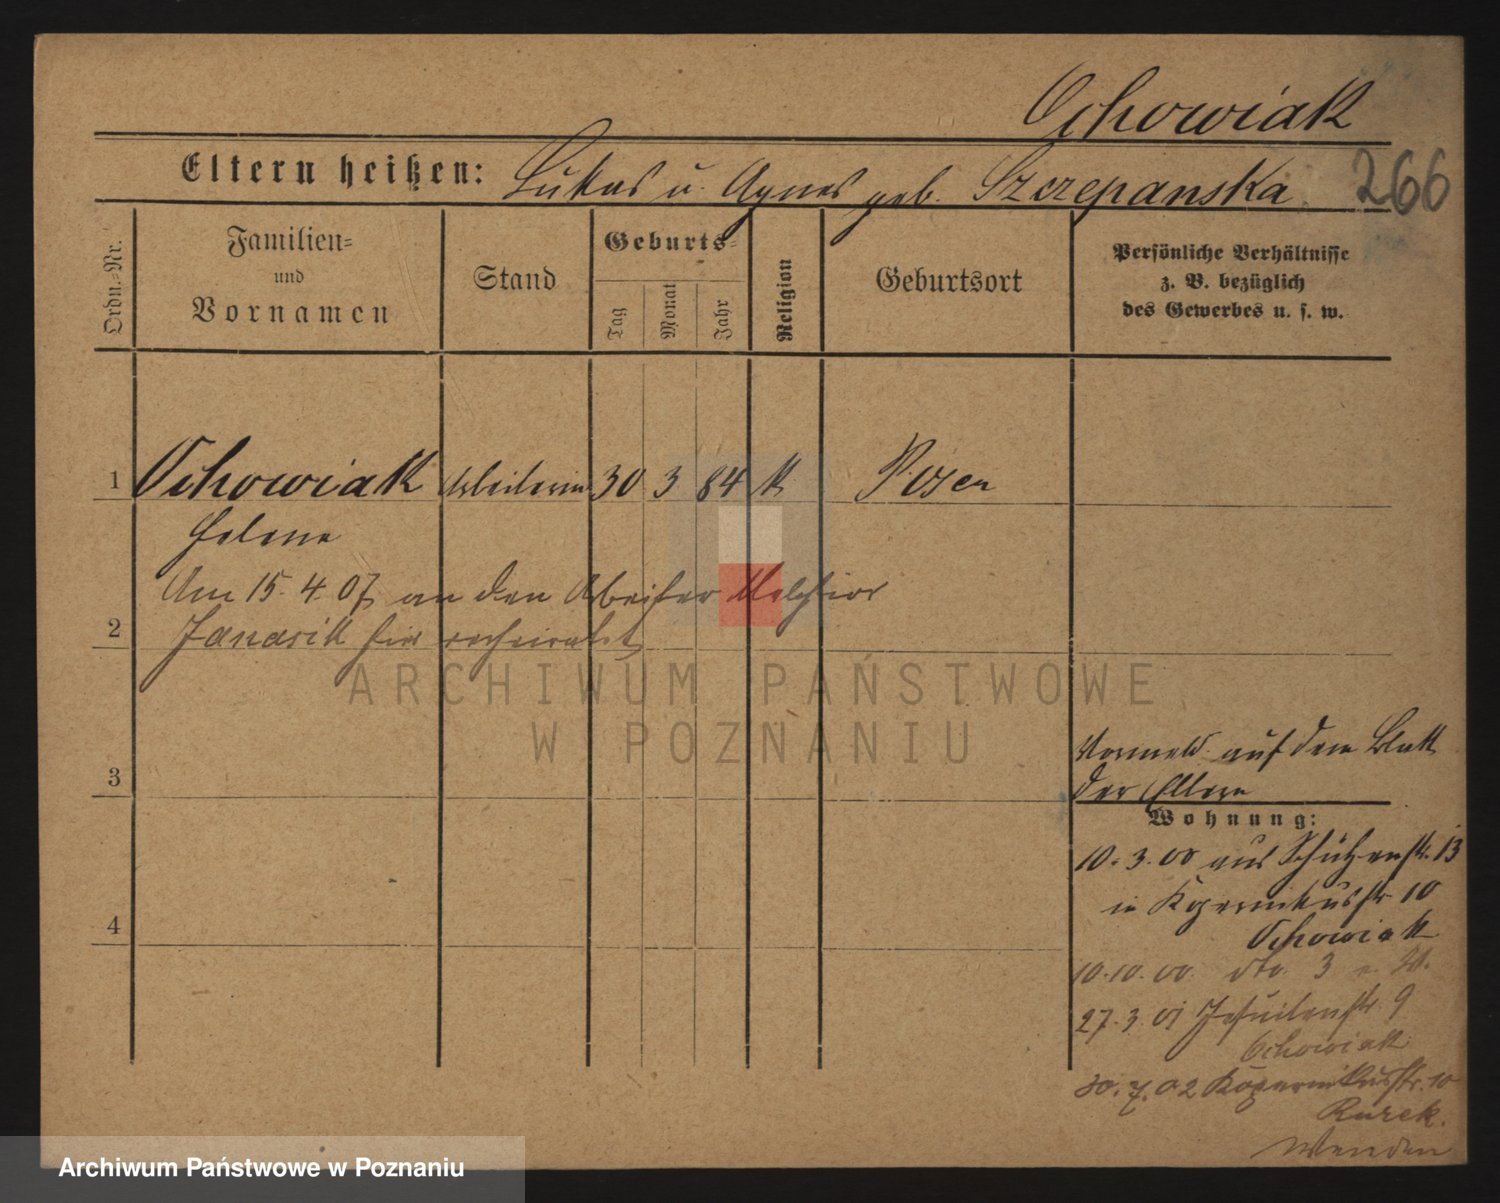 Ochowiak
266
Eltern heißen: Lukas u. Agnes geb. Szczepanska
Ordn.=Nr.
Familien=
und
Vornamen
Stand
Geburts=
Tag
Monat
Jahr
Religion
Geburtsort
Persönliche Verhältnisse
z. B. bezüglich
des Gewerbes u. s. w.
1 Ochowiak Arbeiterin 30 3 84 k Posen
Helene
Am 15.4.07 an den Arbeiter Melchior
2 Janasik hier verheiratet
ARCHIWUM PAŃSTWOWE
W POZNANIU
3
4
Vormeld. auf dem Blatt
der Eltern
Wohnung:
10.3.00 aus Schützenstr. 13
in Kopernikusstr 10
Ochowiak
10.10.00. dto. 3
27.3.01 Jesuitenstr. 9
Ochowiak
30.7.02 Kopernikusstr. 10
Rurek.
Wenden
Archiwum Państwowe w Poznaniu